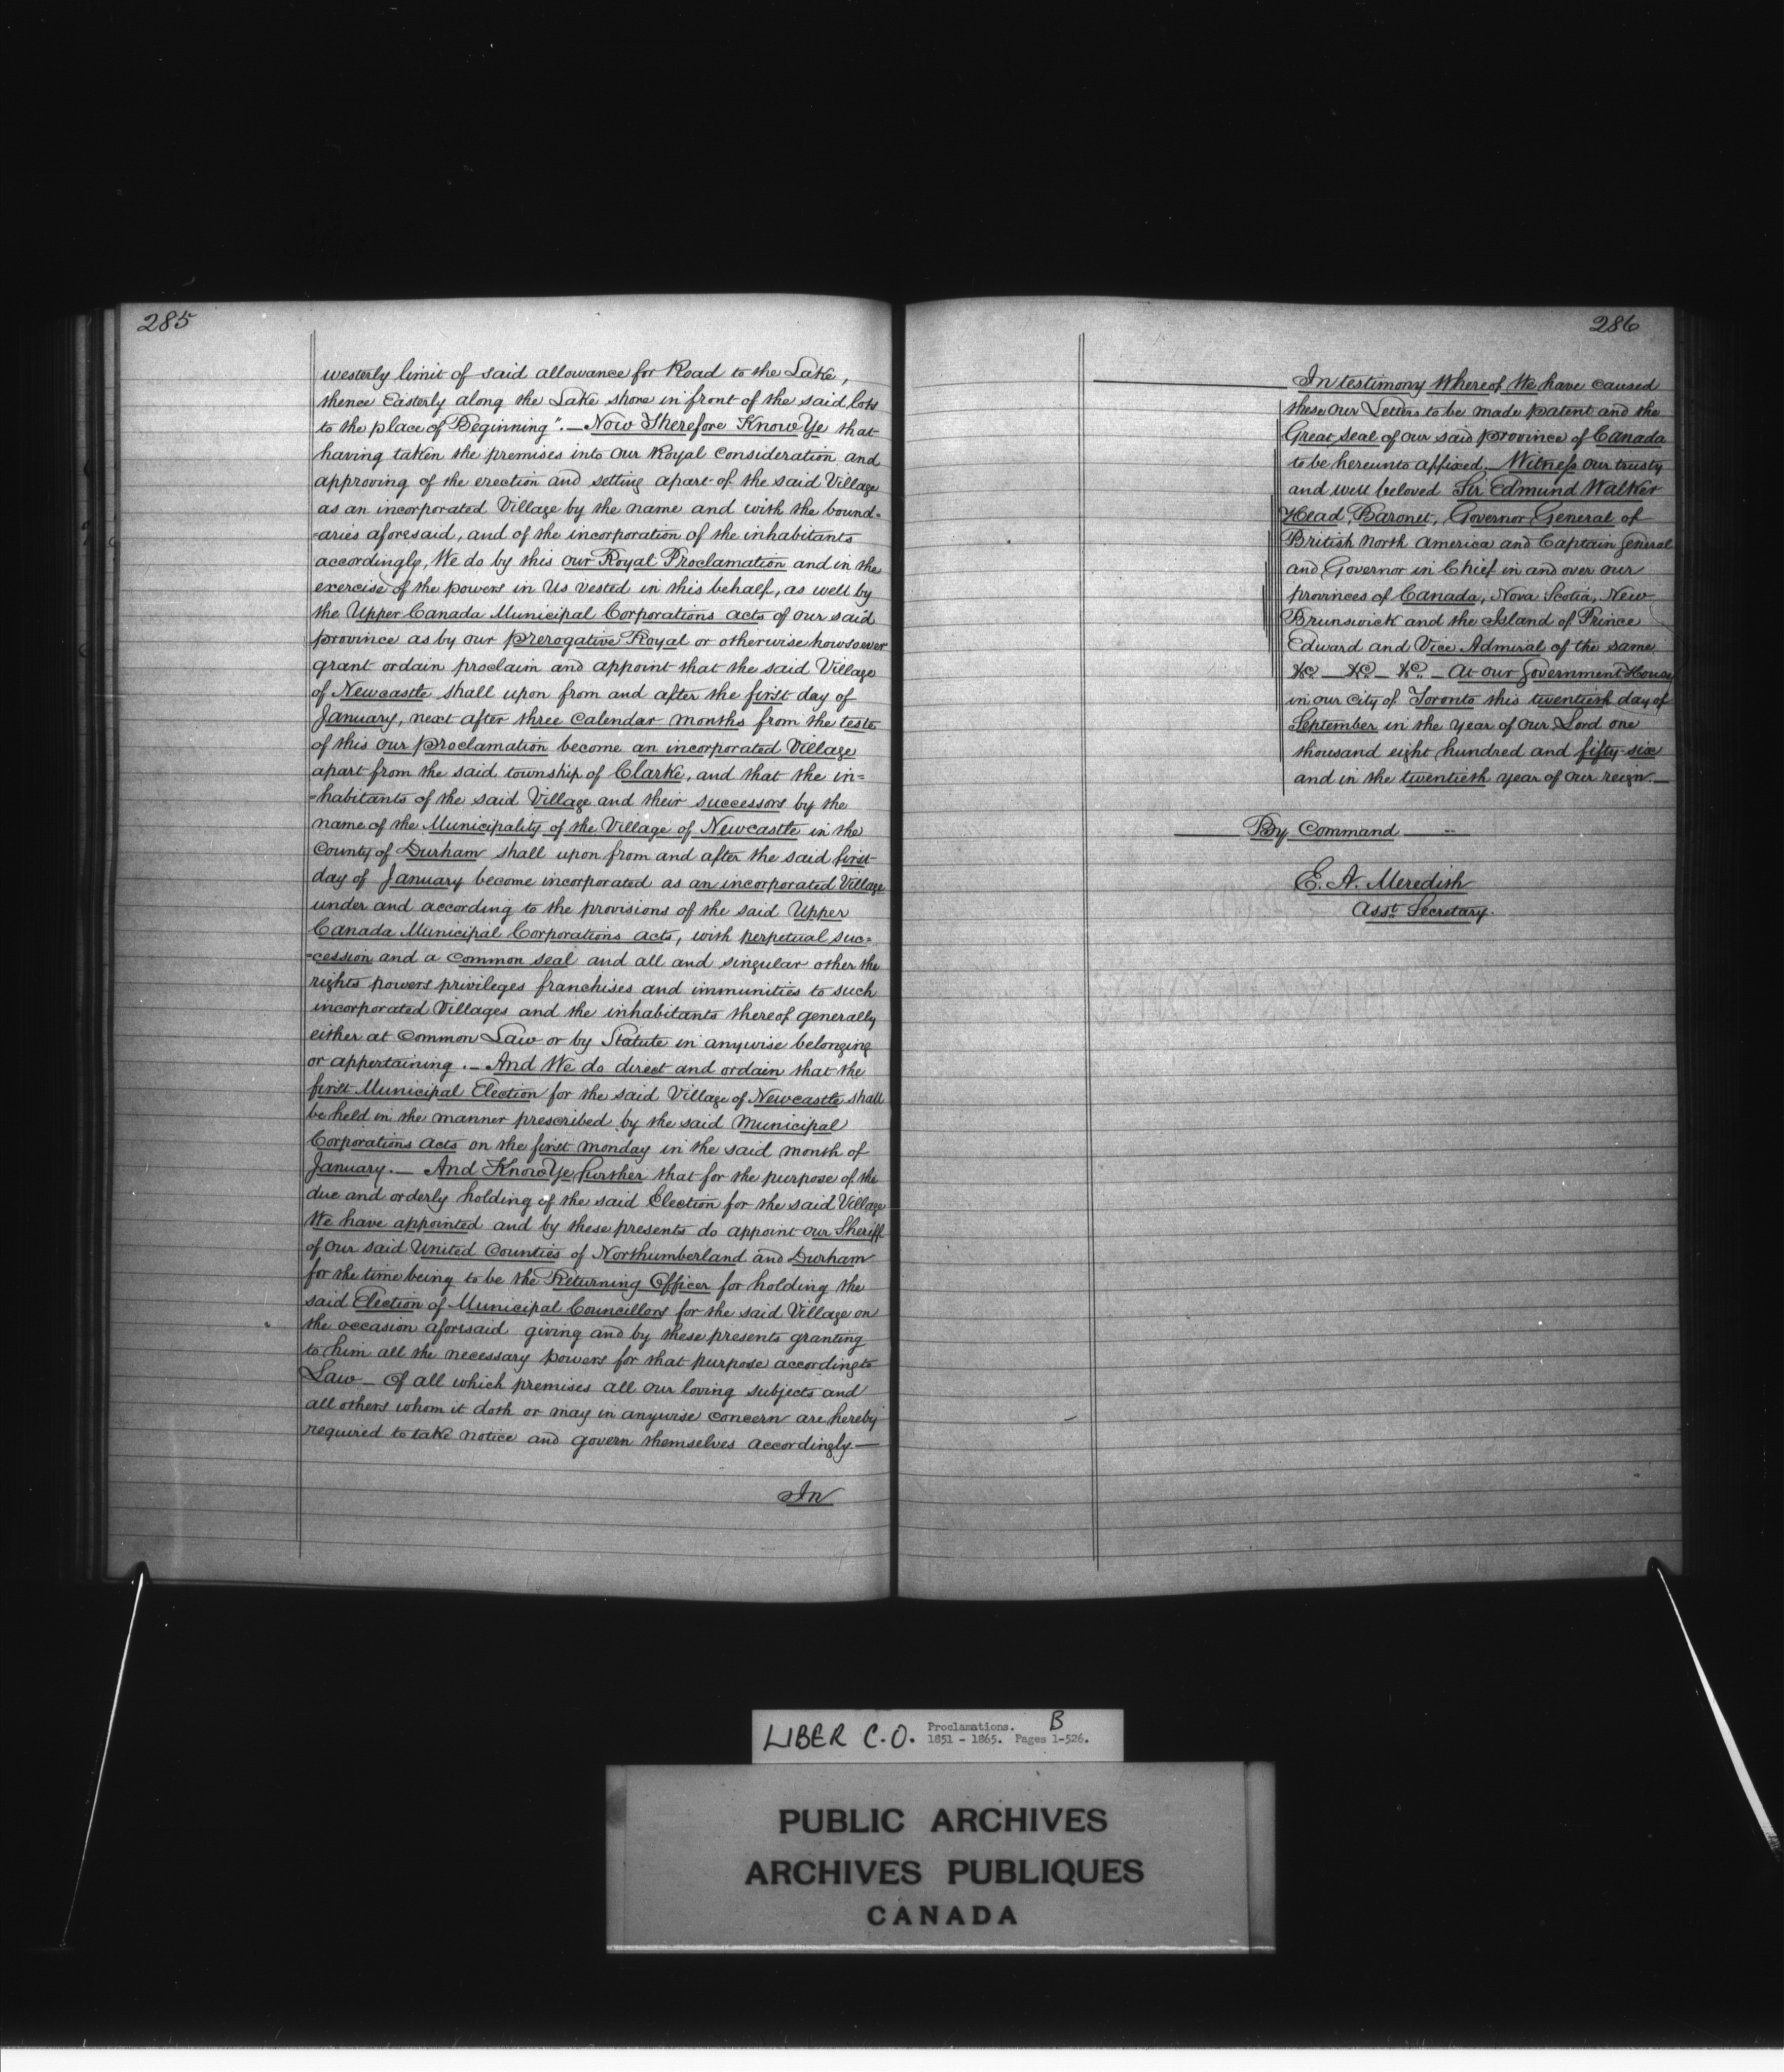 285
westerly limit of said allowance for Road to the Lake,
thence Easterly along the Lake shore in front of the said lots
to the place of Beginning". — Now Therefore Know Ye that
having taken the premises into our Royal Consideration and
approving of the erection and setting apart of the said Village
as an incorporated Village by the name and with the bound=
=aries aforesaid, and of the incorporation of the inhabitants
accordingly, We do by this our Royal Proclamation and in the
exercise of the powers in Us vested in this behalf, as well by
the Upper Canada Municipal Corporations acts of our said
province as by our prerogative Royal or otherwise howsoever
grant ordain proclaim and appoint that the said Village
of Newcastle shall upon from and after the first day of
January, next after three Calendar months from the teste
of this our proclamation become an incorporated Village
apart from the said township of Clarke, and that the in=
=habitants of the said Village and their successors by the
name of the Municipality of the Village of Newcastle in the
County of Durham shall upon from and after the said first
day of January become incorporated as an incorporated Village
under and according to the provisions of the said Upper
Canada Municipal Corporations acts, with perpetual suc=
=cession and a common seal and all and singular other the
rights powers privileges franchises and immunities to such
incorporated Villages and the inhabitants thereof generally
either at Common Law or by Statute in anywise belonging
or appertaining. — And We do direct and ordain that the
first Municipal Election for the said Village of Newcastle shall
be held in the manner prescribed by the said Municipal
Corporations acts on the first Monday in the said month of
January. — And Know Ye further that for the purpose of the
due and orderly holding of the said Election for the said Village
We have appointed and by these presents do appoint our Sheriff
of our said United Counties of Northumberland and Durham
for the time being to be the Returning Officer for holding the
said Election of Municipal Councillors for the said Village on
the occasion aforesaid giving and by these presents granting
to him all the necessary powers for that purpose according to
Law — Of all which premises all our loving subjects and
all others whom it doth or may in anywise concern are hereby
required to take notice and govern themselves accordingly —
In
286
In testimony Whereof We have caused
these our Letters to be made patent and the
Great Seal of our said province of Canada
to be hereunto affixed. Witness our trusty
and well beloved Sir Edmund Walker
Head, Baronet, Governor General of
British North America and Captain General
and Governor in Chief in and over our
provinces of Canada, Nova Scotia, New
Brunswick and the Island of Prince
Edward and Vice Admiral of the same
&c. — &c. — &c. — At our Government House
in our City of Toronto this twentieth day of
September in the year of our Lord one
thousand eight hundred and fifty-six
and in the twentieth year of our reign. —
By Command —
E. A. Meredith
Asst. Secretary.
LIBER C.O. Proclamations. B
1851 - 1865. Pages 1-526.
PUBLIC ARCHIVES
ARCHIVES PUBLIQUES
CANADA